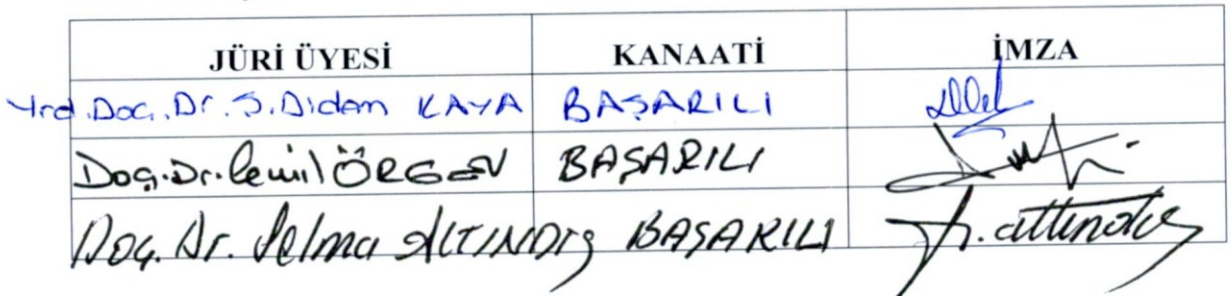 JÜRİ ÜYESİ KANAATİ İMZA
Yrd.Doç.Dr.S.Didem KAYA BAŞARILI
Doç.Dr.Cemil ÖRGEV BAŞARILI
Doç.Dr.Selma ALTINDİŞ BAŞARILI S.altındiş